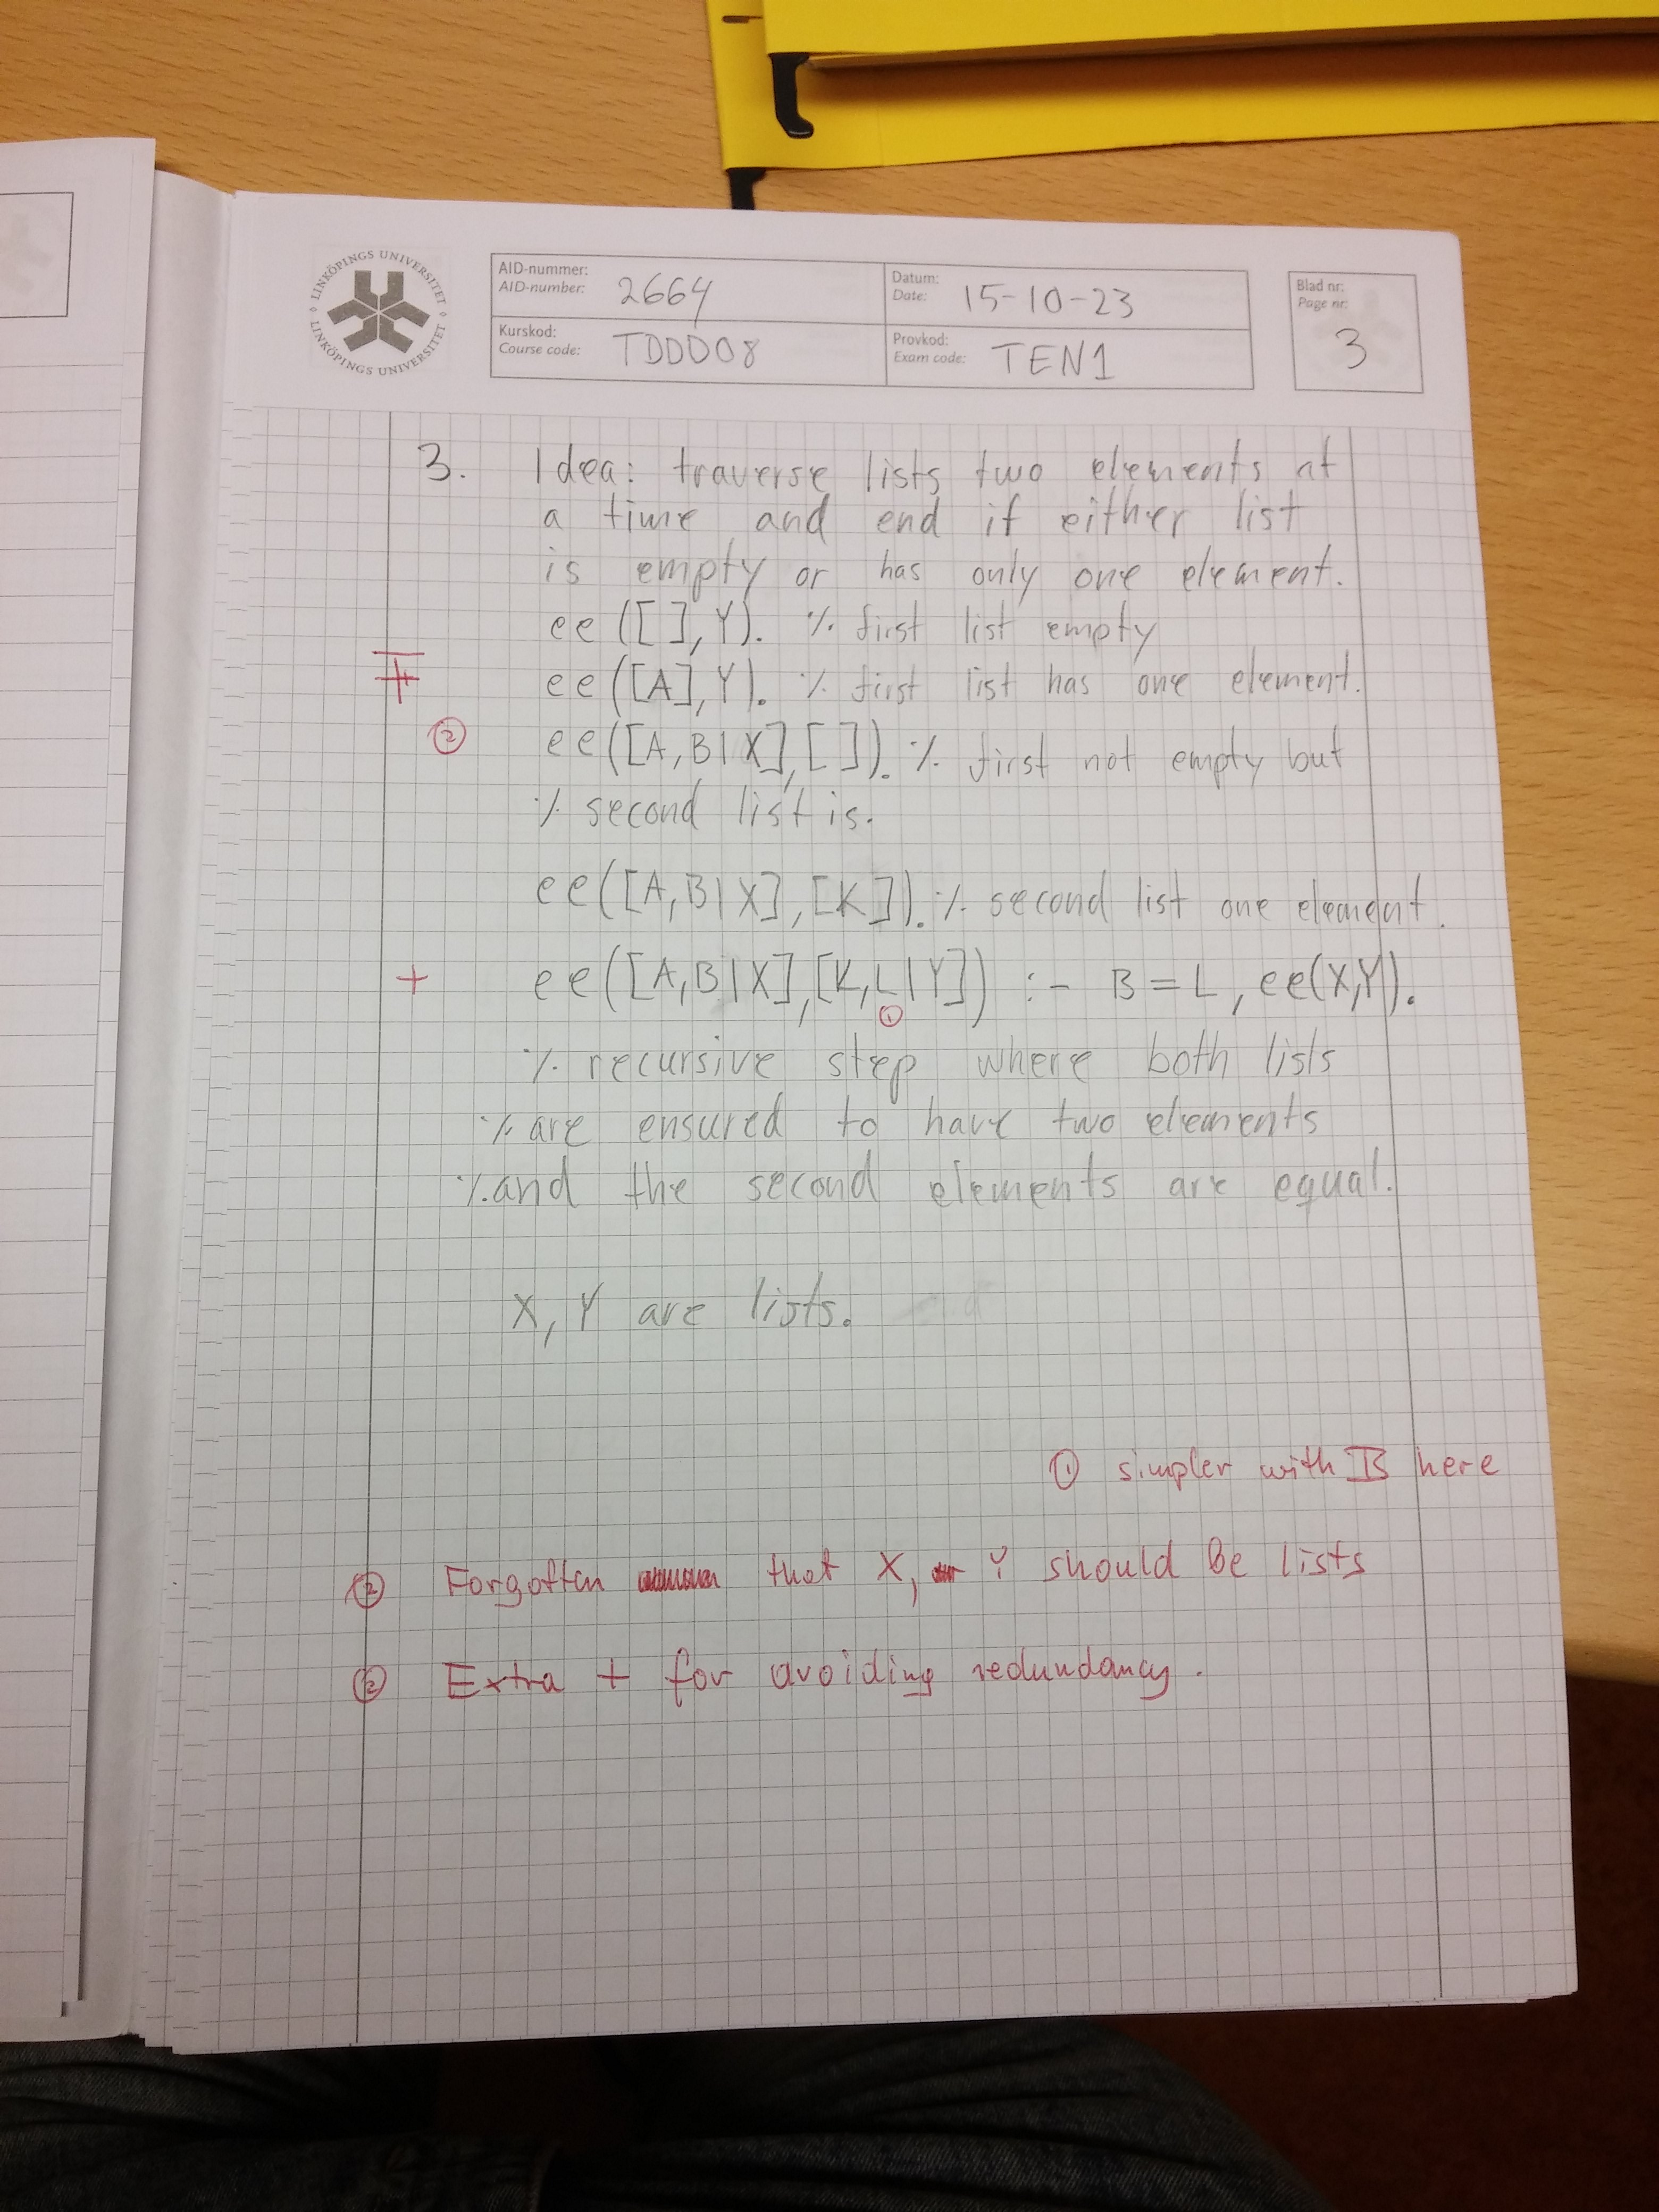 LINKÖPINGS UNIVERSITET
LINKÖPINGS UNIVERSITET
AID-nummer:
AID-number: 2664
Datum:
Date: 15-10-23
Blad nr:
Page nr:
3
Kurskod:
Course code: TDDD08
Provkod:
Exam code: TEN1
3. Idea: traverse lists two elements at
a time and end if either list
is empty or has only one element.
ee([ ],Y). % first list empty
ee([A],Y). % first list has one element.
② ee([A,B|X],[ ]). % first not empty but
% second list is.
ee([A,B|X],[K]). % second list one element.
+ ee([A,B|X],[K,L|Y]) :- B=L, ee(X,Y).
①
% recursive step where both lists
% are ensured to have two elements
% and the second elements are equal.
X, Y are lists.
① simpler with B here
② Forgotten that X, Y should be lists
② Extra + for avoiding redundancy.